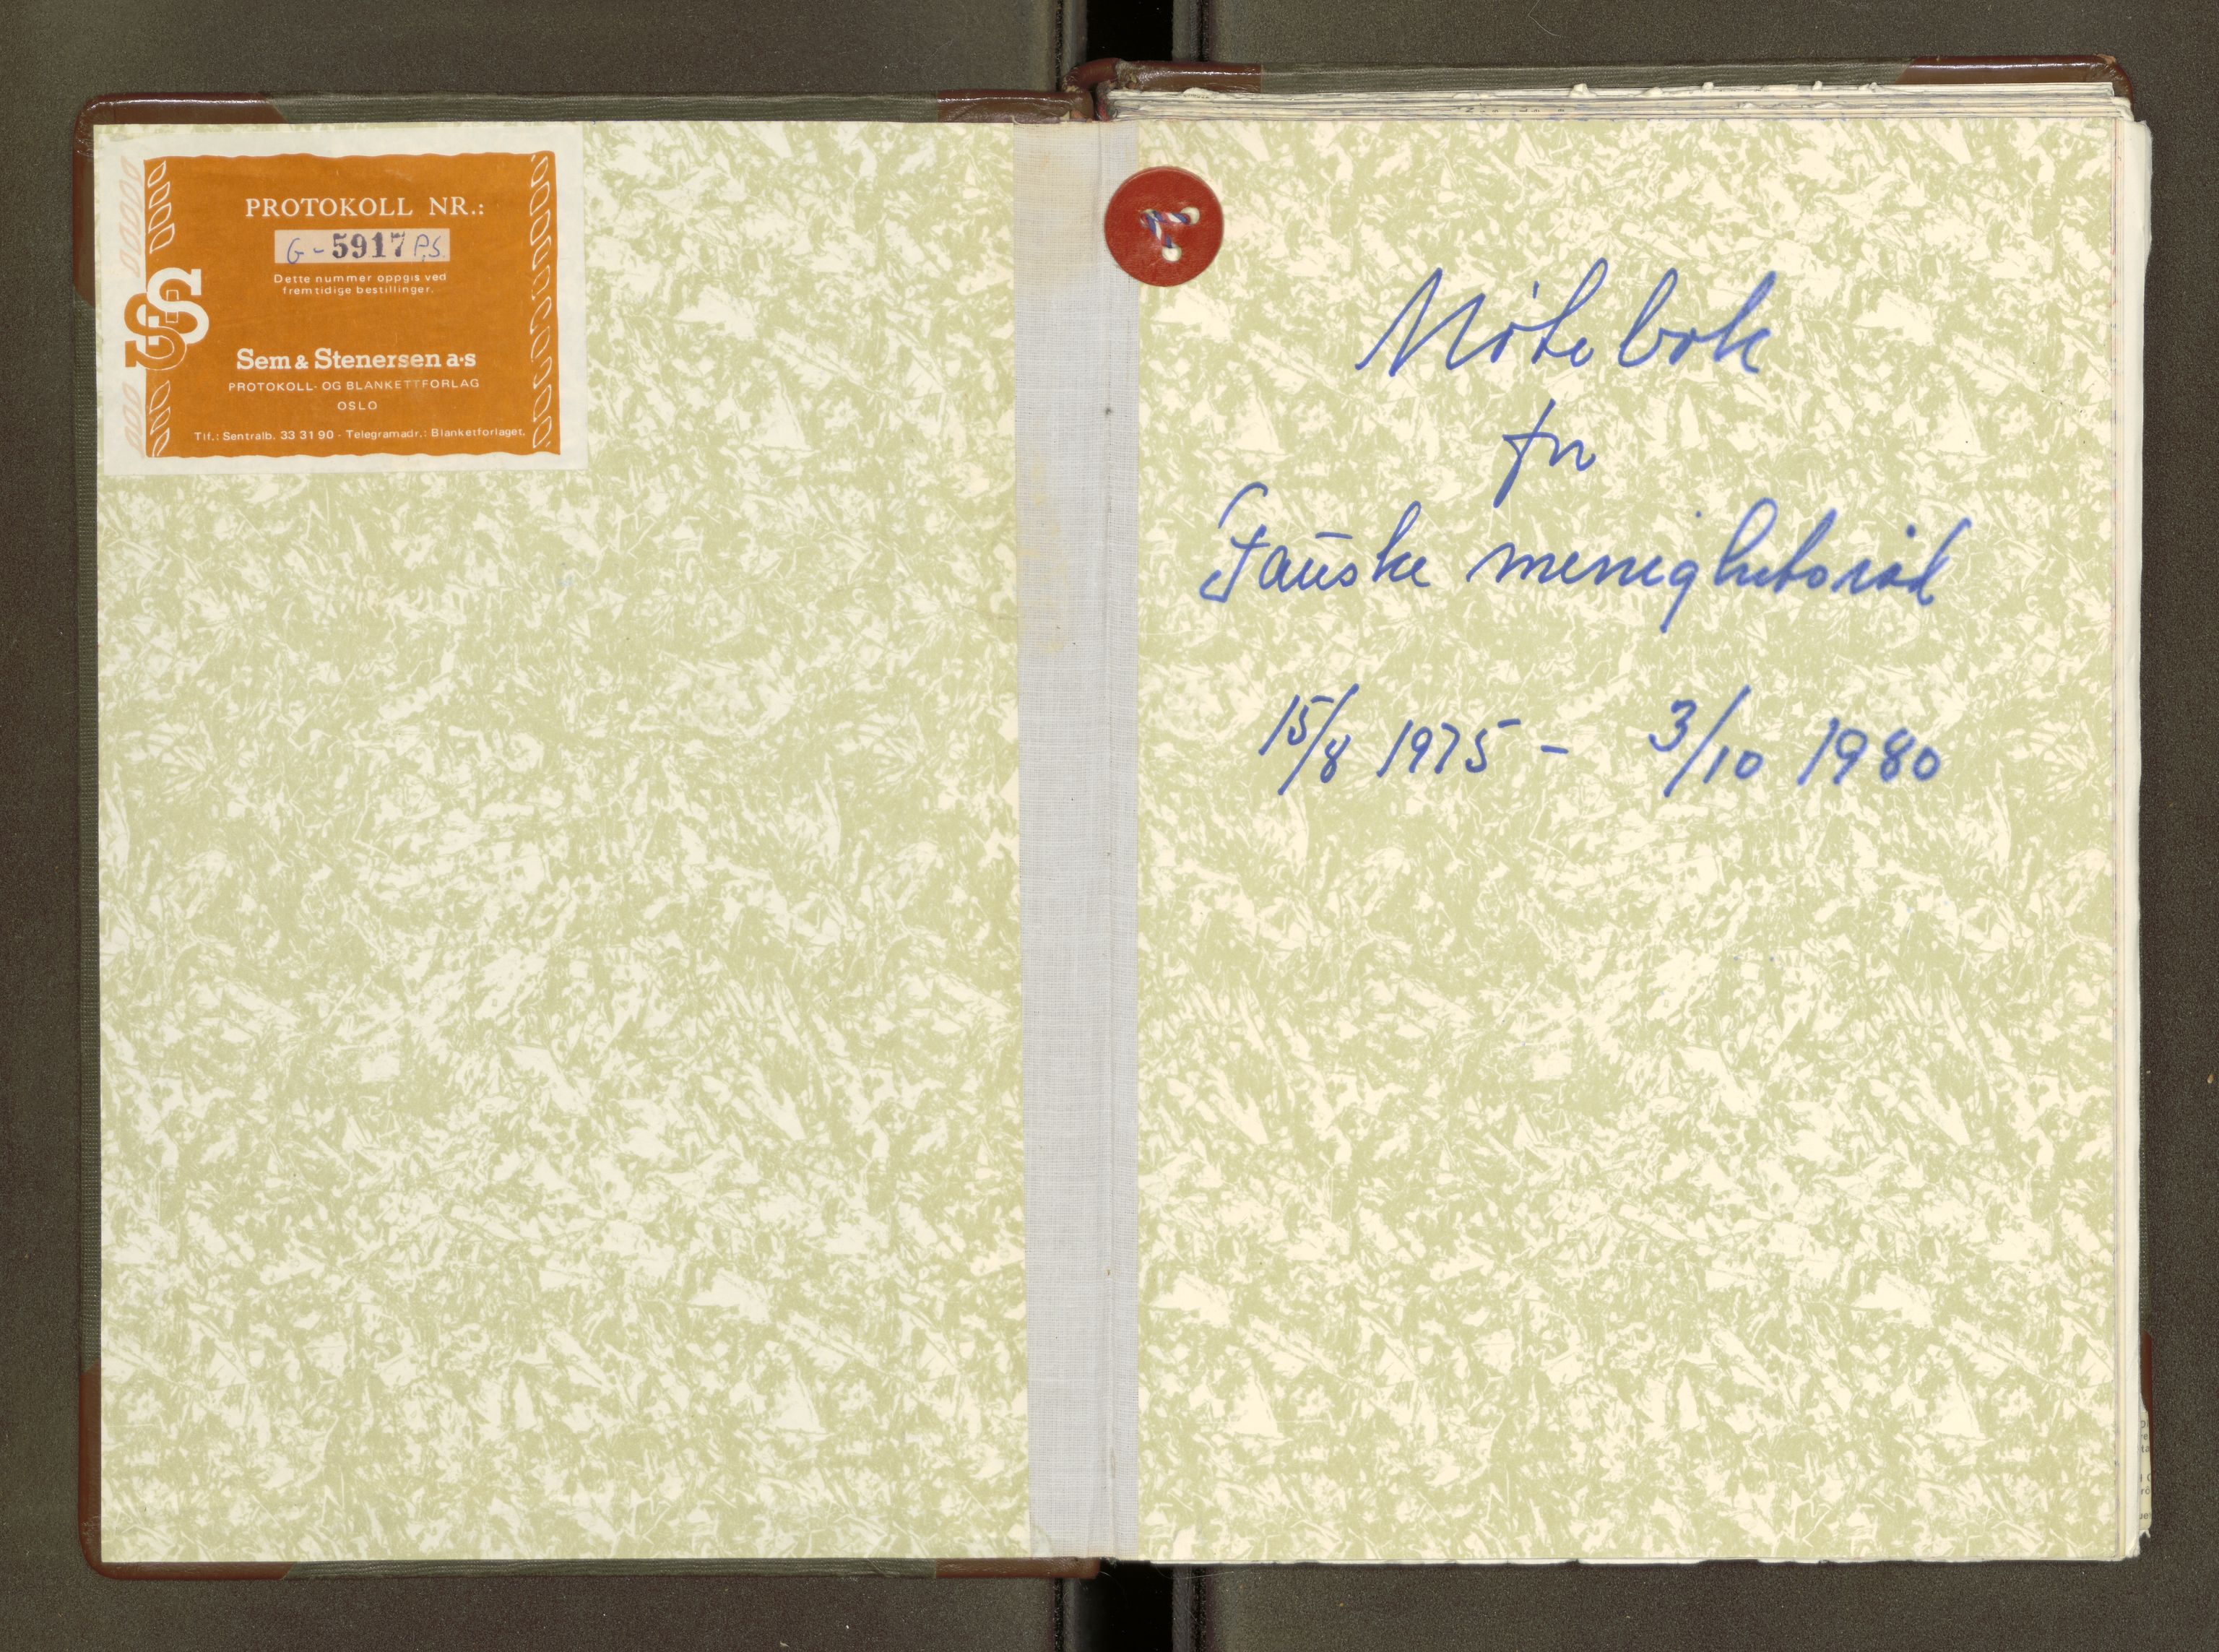 PROTOKOLL NR.:
G-5917 P.S.
Dette nummer oppgis ved
fremtidige bestillinger.
Sem & Stenersen a·s
PROTOKOLL- OG BLANKETTFORLAG
OSLO
Tlf.: Sentralb. 33 31 90 - Telegramadr.: Blanketforlaget.
Møtebok
for
Fauske menighetsråd
15/8 1975 - 3/10 1980